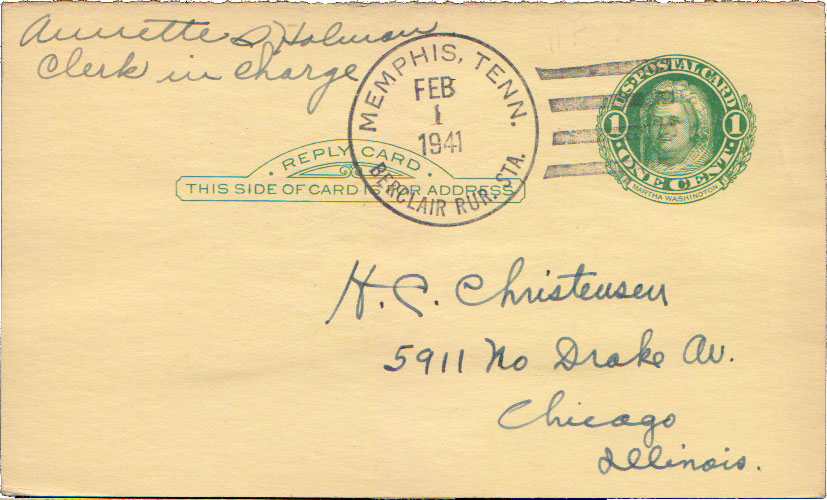 Annette S Holman
Clerk in charge
MEMPHIS, TENN.
FEB
1
1941
BERCLAIR RUR. STA.
U.S. POSTAL CARD
1 1
ONE CENT
MARTHA WASHINGTON
REPLY CARD
THIS SIDE OF CARD IS FOR ADDRESS
H. C. Christensen
5911 No Drake Av.
Chicago
Illinois.